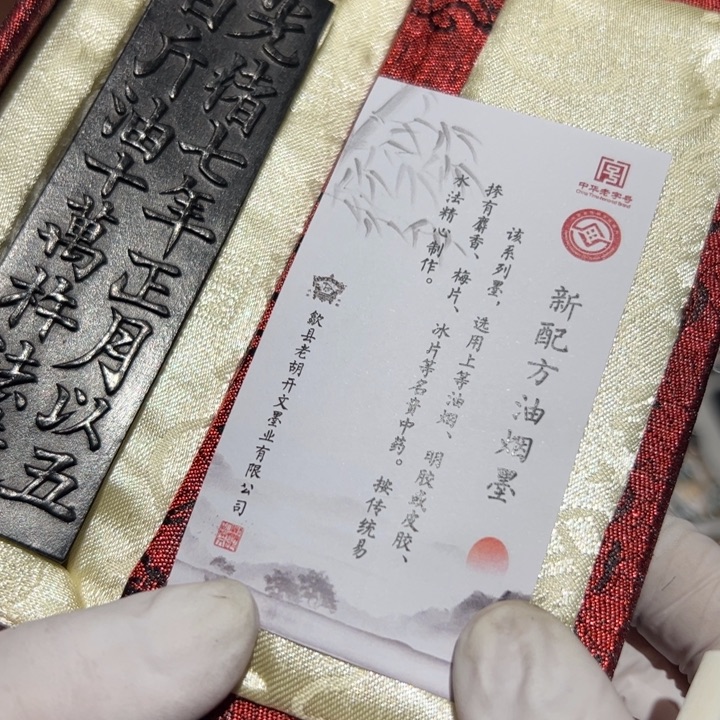 光緒七年正月以五
斤油十萬杵
中华老字号
China Time-honored Brand
新配方油烟墨
该系列墨，选用上等油烟、明胶或皮胶、
掺有麝香、梅片、冰片等名贵中药。按传统易
水法精心制作。
歙县老胡开文墨业有限公司